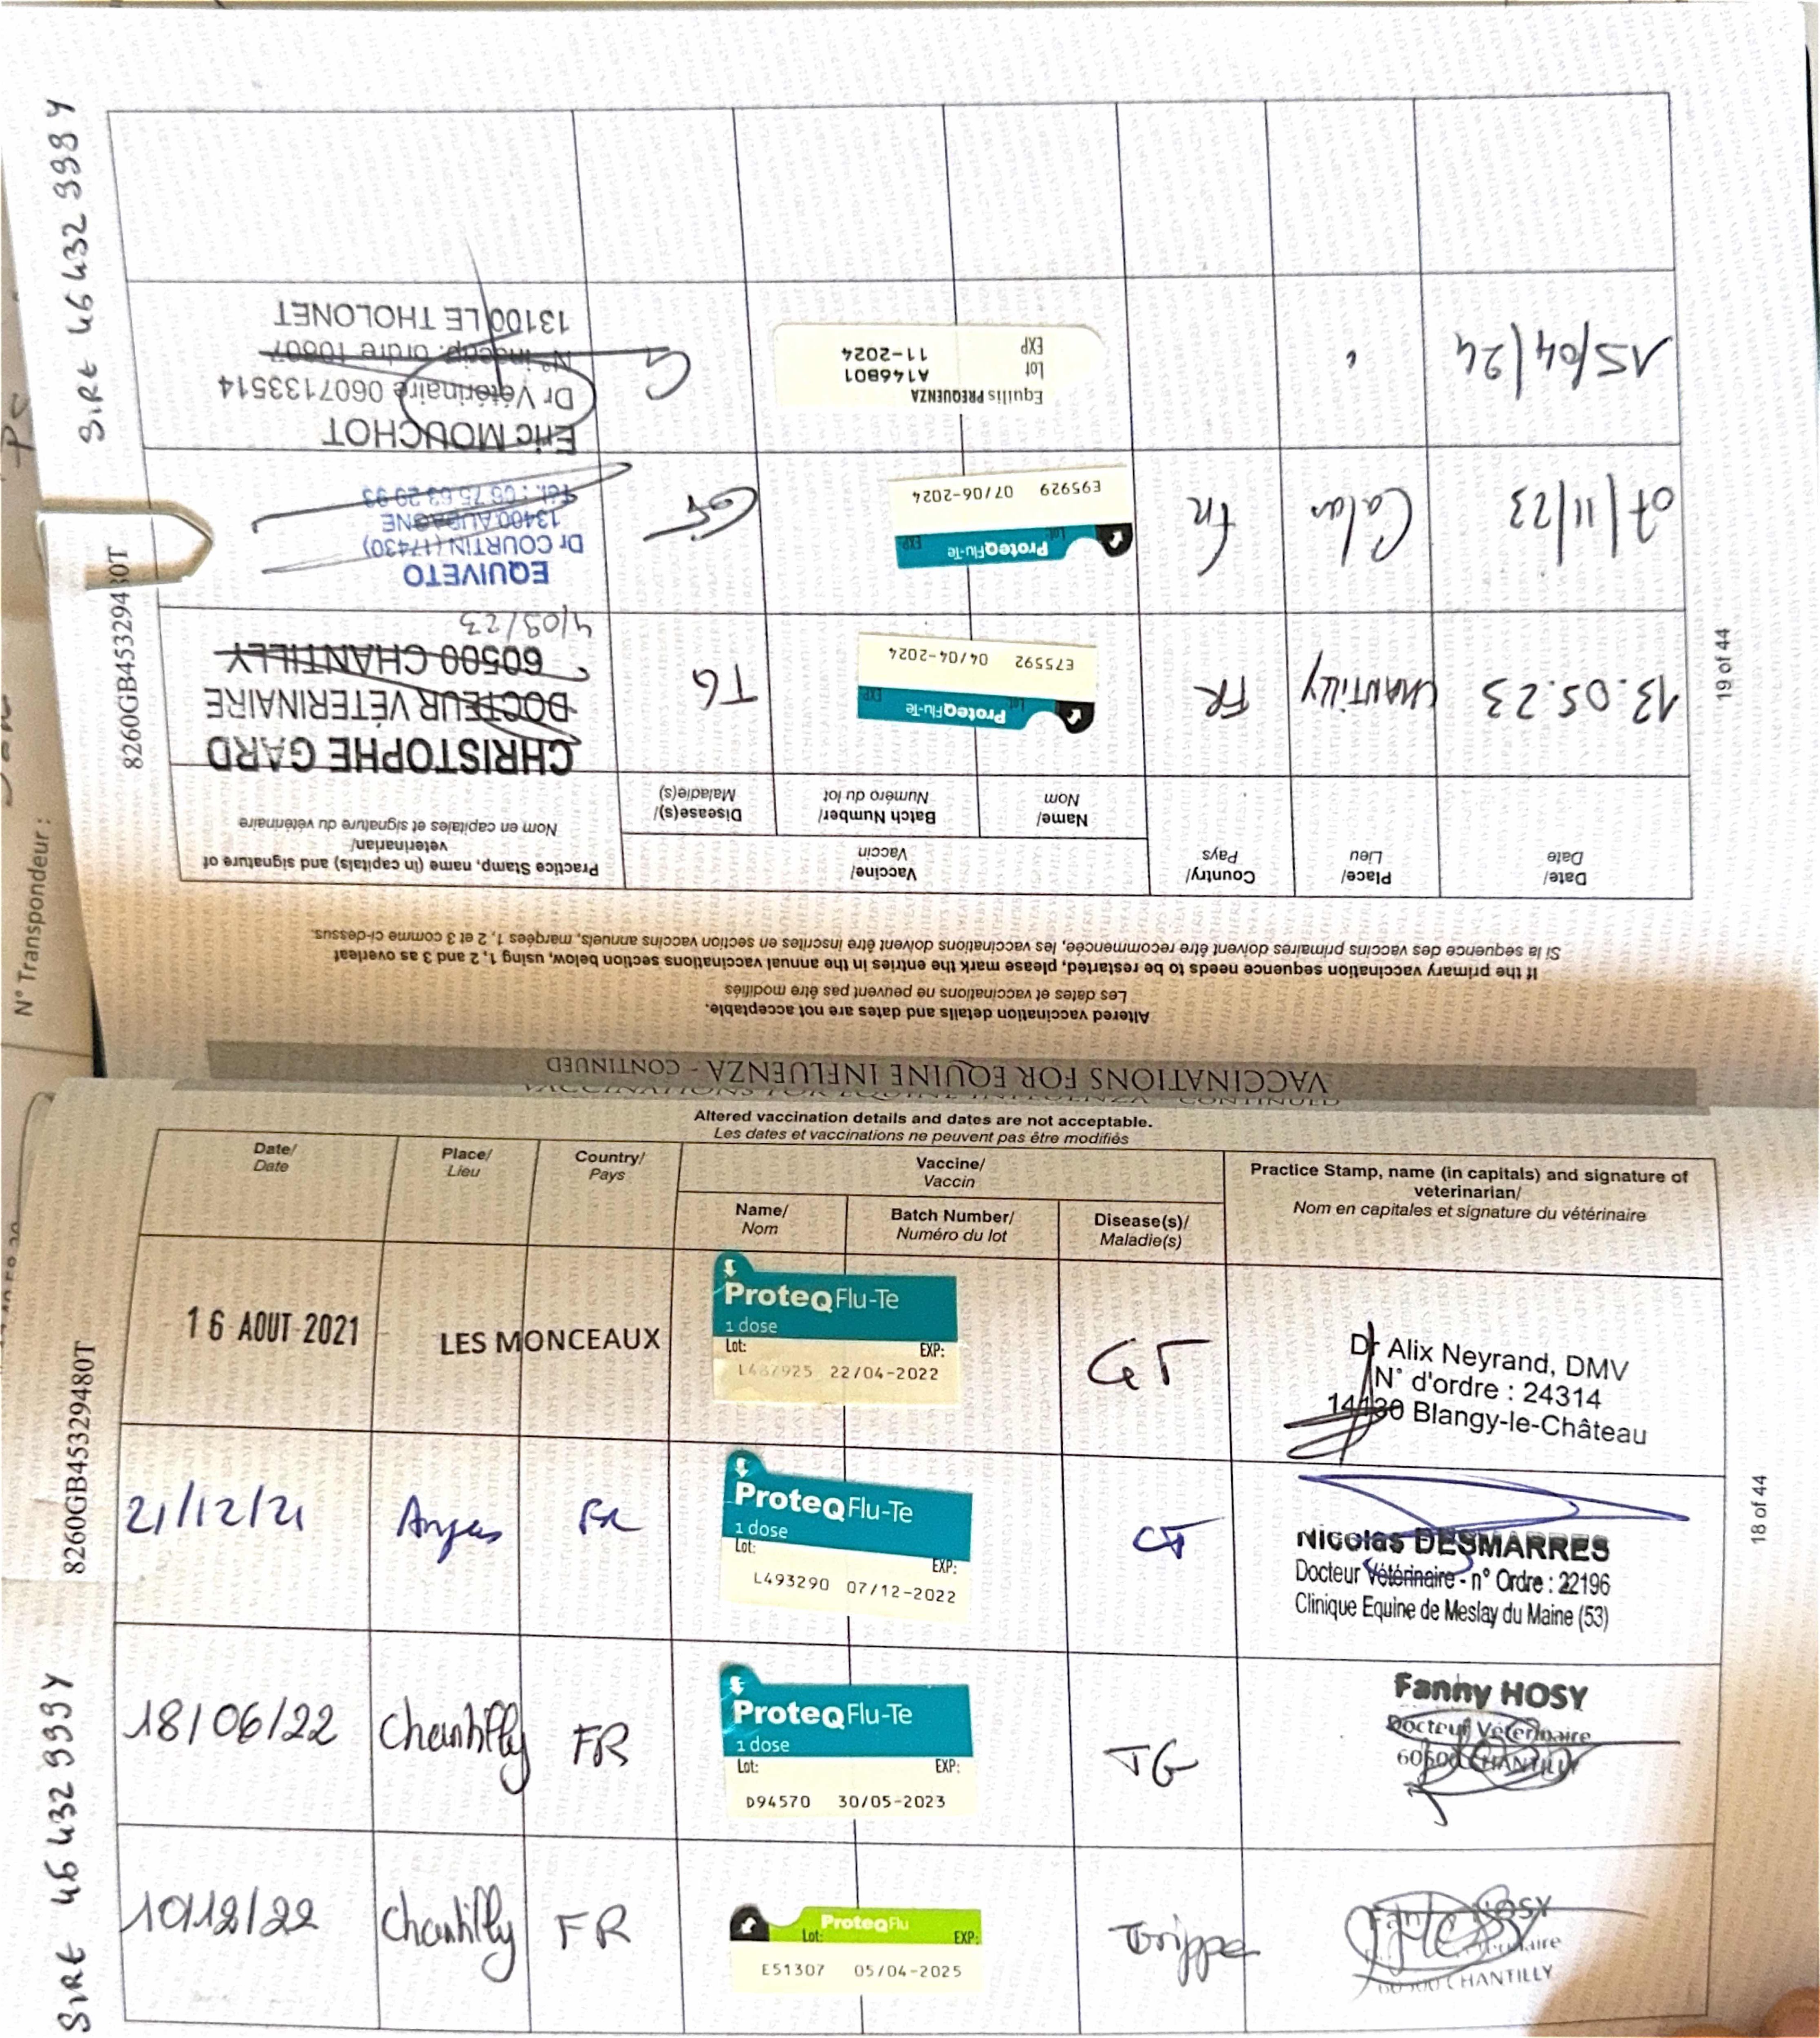 VACCINATIONS FOR EQUINE INFLUENZA - CONTINUED
Altered vaccination details and dates are not acceptable.
Les dates et vaccinations ne peuvent pas être modifiés
Date/ Date
Place/ Lieu
Country/ Pays
Vaccine/ Vaccin
Name/ Nom
Batch Number/ Numéro du lot
Disease(s)/ Maladie(s)
Practice Stamp, name (in capitals) and signature of
veterinarian/
Nom en capitales et signature du vétérinaire
16 AOUT 2021
LES MONCEAUX
ProteqFlu-Te
1 dose
Lot: EXP:
22/04-2022
GT
Dr Alix Neyrand, DMV
N° d'ordre : 24314
14130 Blangy-le-Château
21/12/21
FR
ProteqFlu-Te
1 dose
Lot: EXP:
L493290 07/12-2022
GT
Nicolas DESMARRES
Docteur Vétérinaire - n° Ordre : 22196
Clinique Equine de Meslay du Maine (53)
18/06/22
Chantilly
FR
ProteqFlu-Te
1 dose
Lot: EXP:
D94570 30/05-2023
TG
Fanny HOSY
Docteur Vétérinaire
60500 CHANTILLY
10/12/22
Chantilly
FR
ProteqFlu
Lot: EXP:
E51307 05/04-2025
Grippe
Fanny HOSY
60500 CHANTILLY
8260GB45329480T
18 of 44
VACCINATIONS FOR EQUINE INFLUENZA - CONTINUED
Altered vaccination details and dates are not acceptable.
Les dates et vaccinations ne peuvent pas être modifiés
If the primary vaccination sequence needs to be restarted, please mark the entries in the annual vaccinations section below, using 1, 2 and 3 as overleaf
Si la séquence des vaccins primaires doivent être recommencée, les vaccinations doivent être inscrites en section vaccins annuels, marqées 1, 2 et 3 comme ci-dessus.
Date/ Date
Place/ Lieu
Country/ Pays
Vaccine/ Vaccin
Name/ Nom
Batch Number/ Numéro du lot
Disease(s)/ Maladie(s)
Practice Stamp, name (in capitals) and signature of
veterinarian/
Nom en capitales et signature du vétérinaire
13.05.23
CHANTILLY
FR
ProteqFlu-Te
Lot: EXP
E75592 04/04-2024
TG
CHRISTOPHE GARD
DOCTEUR VÉTERINAIRE
60500 CHANTILLY
07/11/23
Calas
FR
ProteqFlu-Te
Lot: EXP
E95929 07/06-2024
GT
EQUIVETO
Dr COURTIN (17430)
13400 AUBAGNE
15/04/24
Equilis PREQUENZA
Lot A146B01
EXP 11-2024
G
Eric MOUCHOT
Dr Vétérinaire 0607133514
N° inscip. ordre 10807
13100 LE THOLONET
19 of 44
N° Transpondeur :